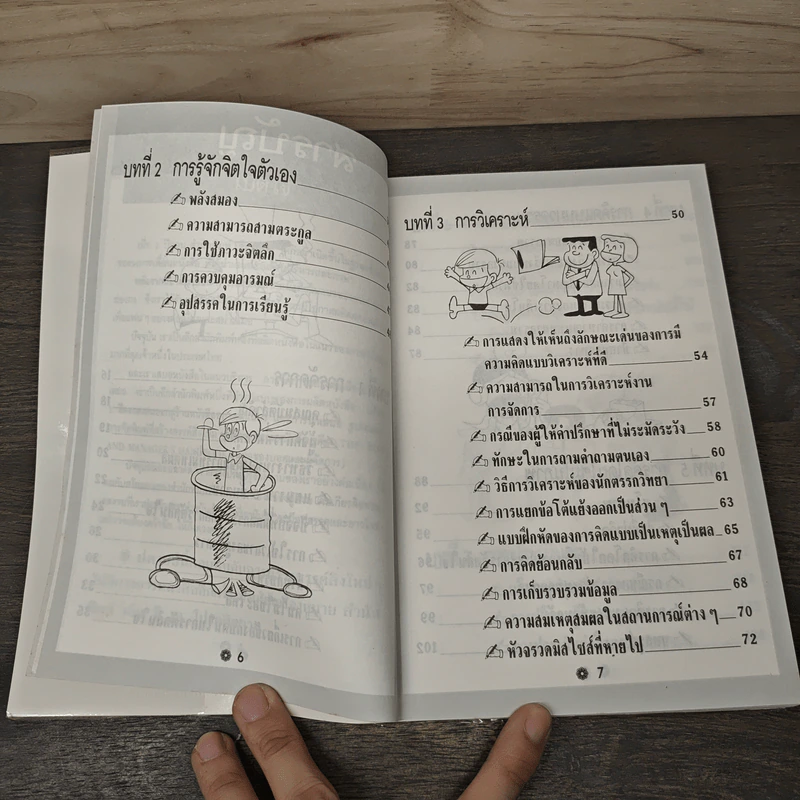 บทที่ 2 การรู้จักจิตใจตัวเอง
พลังสมอง
ความสามารถสามตระกูล
การใช้ภาวะจิตลึก
การควบคุมอารมณ์
อุปสรรคในการเรียนรู้
6
บทที่ 3 การวิเคราะห์ 50
การแสดงให้เห็นถึงลักษณะเด่นของการมี
ความคิดแบบวิเคราะห์ที่ดี 54
ความสามารถในการวิเคราะห์งาน
การจัดการ 57
กรณีของผู้ให้คำปรึกษาที่ไม่ระมัดระวัง 58
ทักษะในการถามคำถามตนเอง 60
วิธีการวิเคราะห์ของนักตรรกวิทยา 61
การแยกข้อโต้แย้งออกเป็นส่วน ๆ 63
แบบฝึกหัดของการคิดแบบเป็นเหตุเป็นผล 65
การคิดย้อนกลับ 67
การเก็บรวบรวมข้อมูล 68
ความสมเหตุสมผลในสถานการณ์ต่าง ๆ 70
หัวจรวดมิสไซส์ที่หายไป 72
7